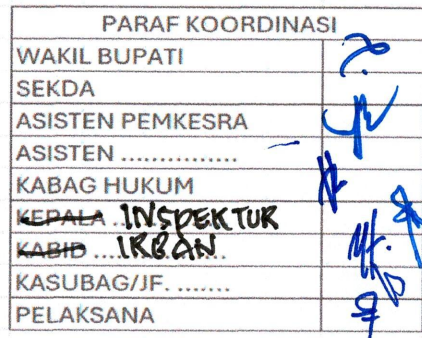 PARAF KOORDINASI
WAKIL BUPATI
SEKDA
ASISTEN PEMKESRA
ASISTEN ...............
KABAG HUKUM
KEPALA .. INSPEKTUR
KABID .... IRBAN
KASUBAG/JF. .......
PELAKSANA